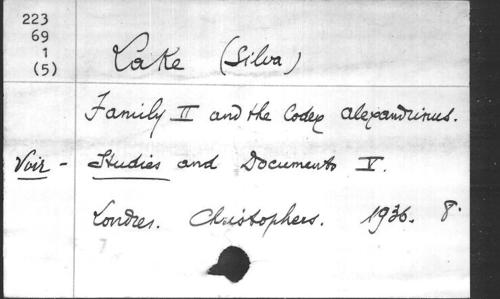 223
69
1
(5)
Lake (Silva)
Family II and the Codex Alexandrinus.
Voir - Studies and Documents V.
Londres. Christophers. 1936. 8°